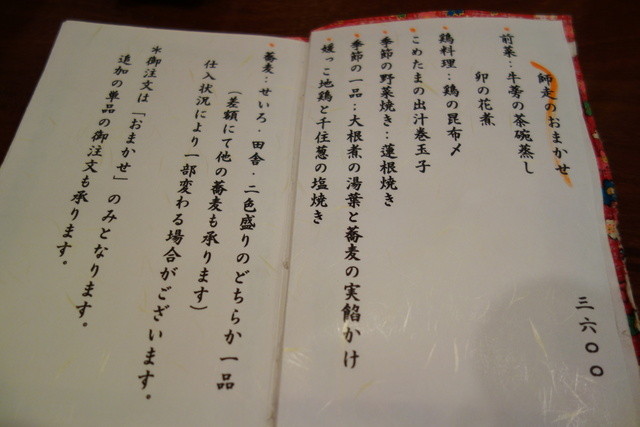 師走のおまかせ
三六〇〇
前菜：牛蒡の茶碗蒸し
卯の花煮
鶏料理：鶏の昆布〆
こめたまの出汁巻玉子
季節の野菜焼き：蓮根焼き
季節の一品：大根煮の湯葉と蕎麦の実餡かけ
媛っこ地鶏と千住葱の塩焼き
蕎麦：せいろ・田舎・二色盛りのどちらか一品
（差額にて他の蕎麦も承ります）
仕入状況により一部変わる場合がございます。
*御注文は「おまかせ」のみとなります。
追加の単品の御注文も承ります。